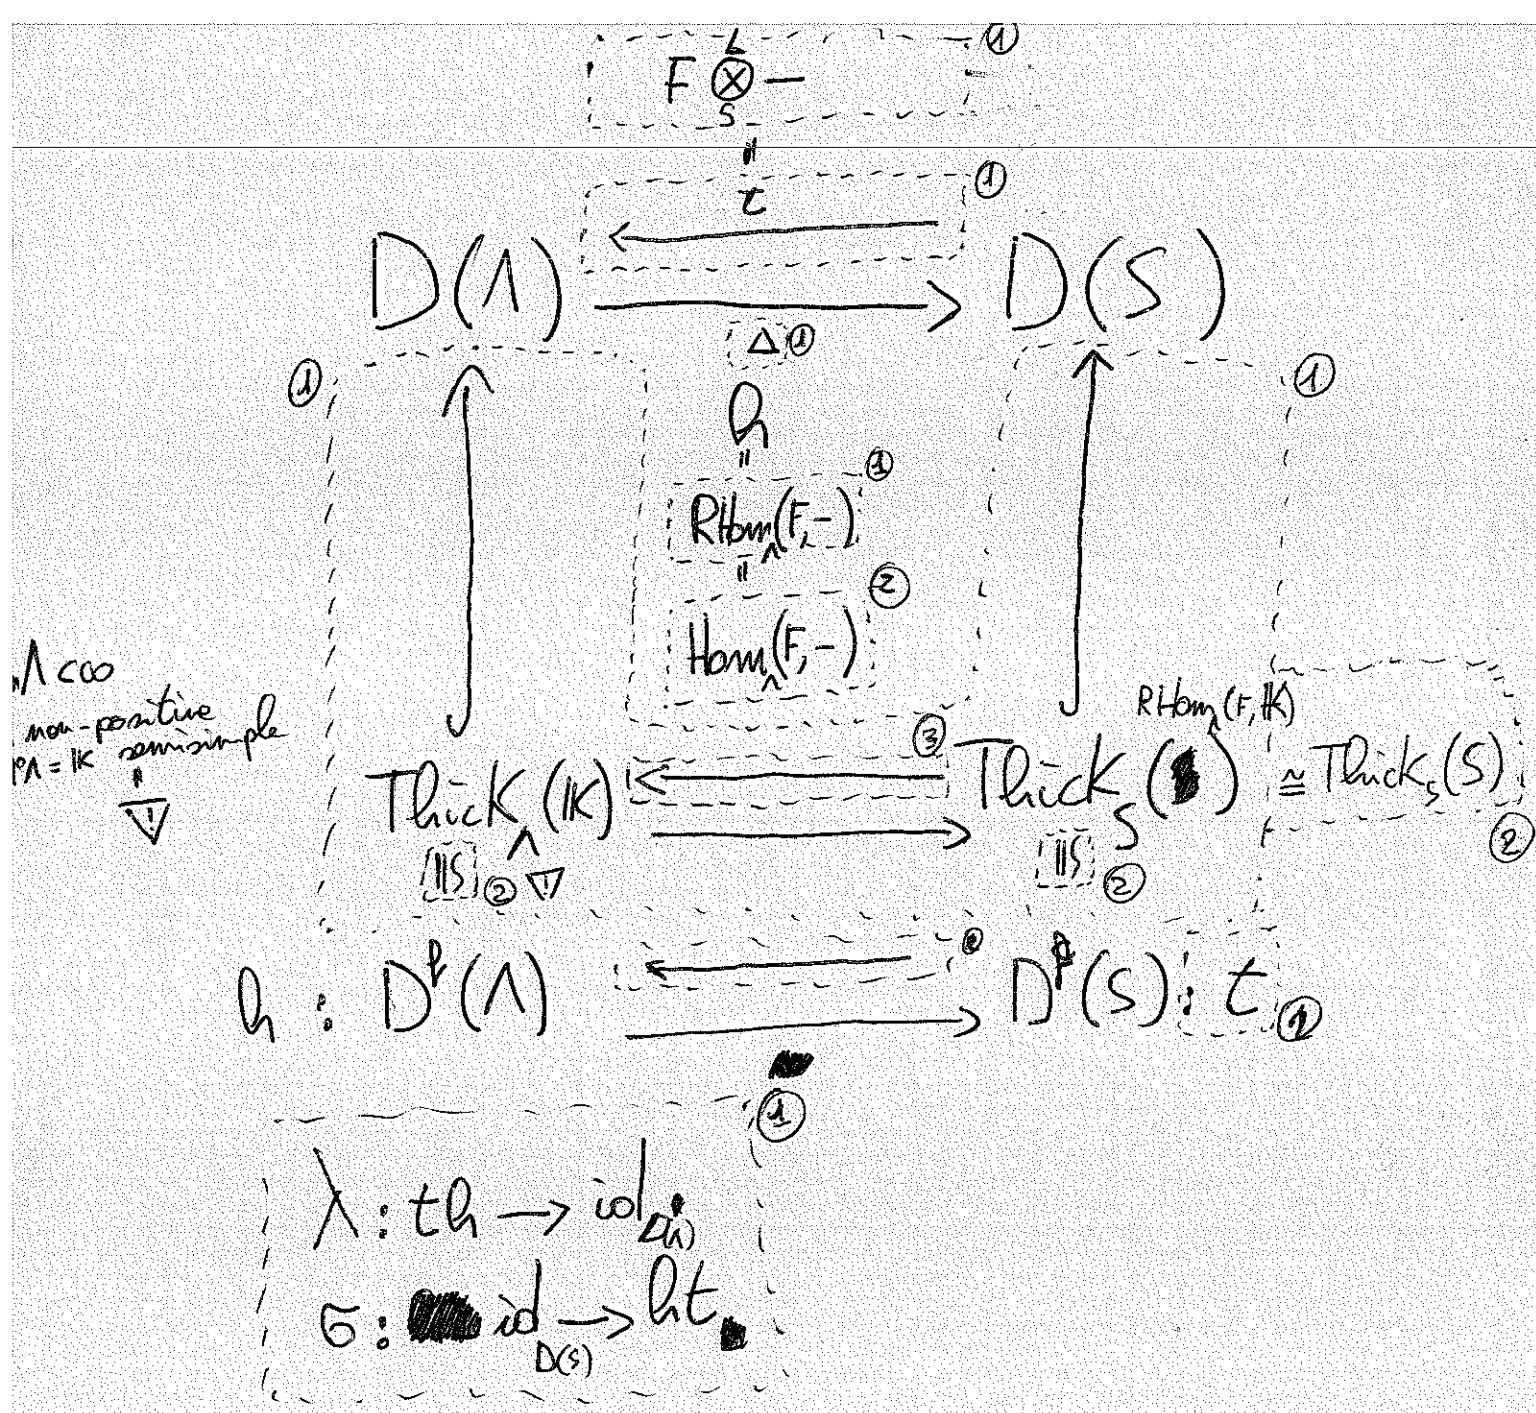 F ⊗ᴸ_S − ①
=
t ①
D(Λ) ← → D(S)
Δ ①
① h ①
=
① RHom_Λ(F,−)
=
② Hom_Λ(F,−)
Λ <∞
non-positive
Λ = 𝕜 semisimple
=
!
RHom_Λ(F,𝕜)
③
Thick_Λ(𝕜) ← → Thick_S( ) ≅ Thick_S(S) ②
≅ ② ! ≅ ②
h : D^f(Λ) ← → D^p(S) : t
①
λ : th → id_D(Λ)
σ : id_D(S) → ht